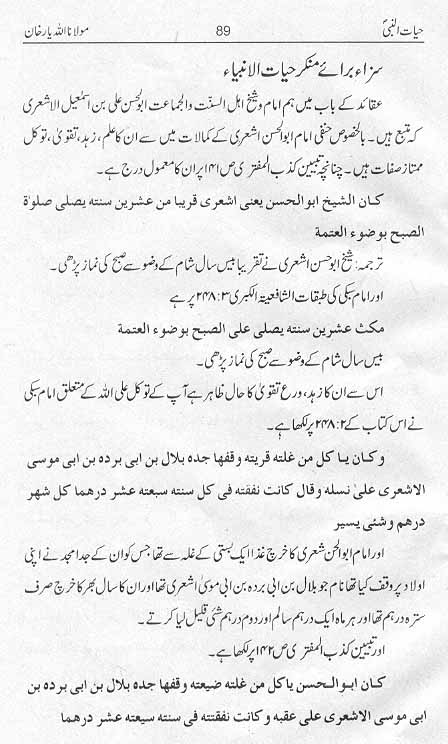 حیات النبیؐ 89 مولانا اللہ یار خان
سزاء برائے منکر حیات الانبیاء
عقائد کے باب میں ہم امام و شیخ اہل السنّت والجماعت ابوالحسن علی بن اسمٰعیل الاشعری
کہ متبع ہیں۔ بالخصوص حنفی امام ابوالحسن اشعری کے کمالات میں سے ان کا علم، زہد، تقویٰ، توکل
ممتاز صفات ہیں۔ چنانچہ تبیین کذب المفتری ص ۱۴۱ پر ان کا معمول درج ہے۔
كان الشيخ ابو الحسن يعنى اشعرى قريبا من عشرين سنته يصلى صلوة
الصبح بوضوء العتمة
ترجمہ: شیخ ابوحسن اشعری نے تقریباً بیس سال شام کے وضو سے صبح کی نماز پڑھی۔
اور امام سبکی کی طبقات الشافعیتہ الکبری ۳:۲۴۸ پر ہے
مكث عشرين سنته يصلى على الصبح بوضوء العتمة
بیس سال شام کے وضو سے صبح کی نماز پڑھی۔
اس سے ان کا زہد، ورع تقویٰ کا حال ظاہر ہے آپ کے توکل علی اللہ کے متعلق امام سبکی
نے اس کتاب کے ۲:۲۴۸ پر لکھا ہے۔
وكان يا كل من غلته قريته وقفها جده بلال بن ابى برده بن ابى موسى
الاشعرى علىٰ نسله وقال كانت نفقته فى كل سنته سبعته عشر درهما كل شهر
درهم وشئى يسير
اور امام ابوالحسن شعری کا خرچ غذا ایک بستی کے غلہ سے تھا جس کو ان کے جد امجد نے اپنی
اولاد پر وقف کیا تھا نام جو بلال بن ابی بردہ بن ابی موسیٰ اشعری تھا اور ان کا سال بھر کا خرچ صرف
سترہ درہم تھا اور ہر ماہ ایک درہم سالم اور دوم درہم شئی قلیل لیا کرتے۔
اور تبیین کذب المفتری ص ۱۴۲ پر لکھا ہے۔
كان ابو الحسن ياكل من غلته ضيعته وقفها جده بلال بن ابى برده بن
ابى موسى الاشعرى على عقبه وكانت نفقتته فى سنته سبعته عشر درهما